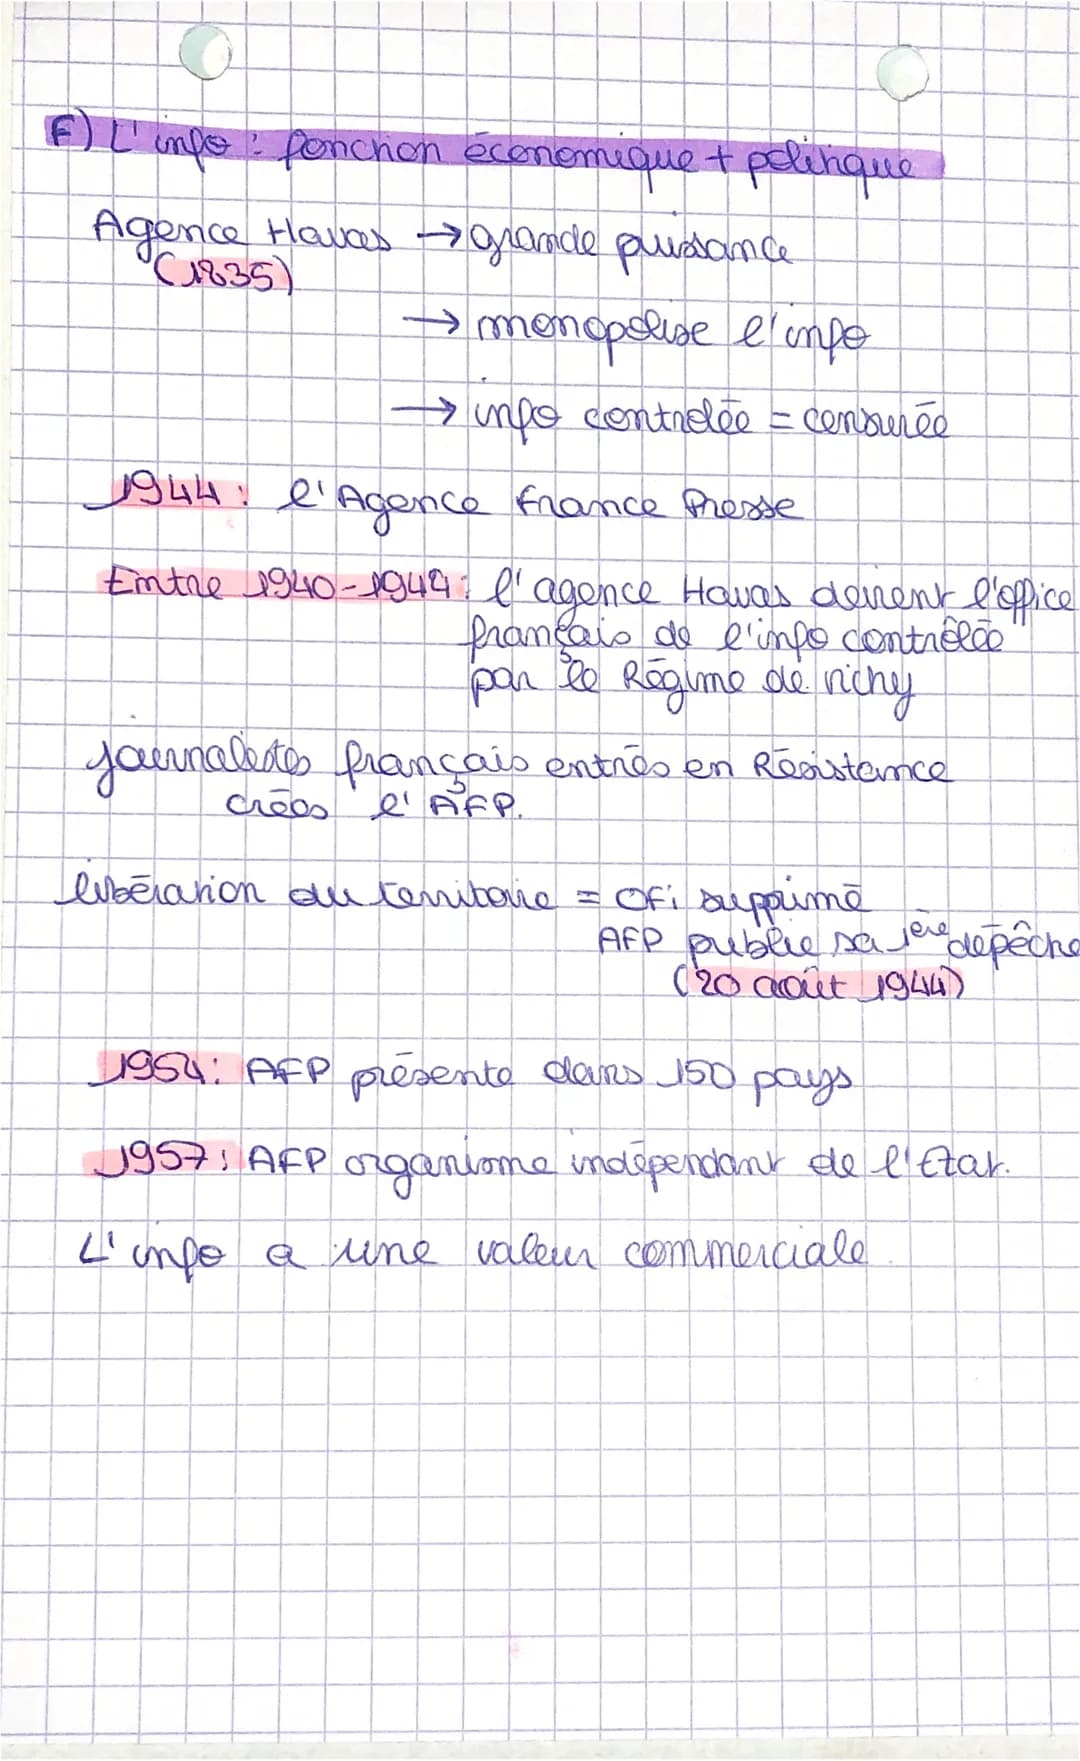 F) L'info : fonction économique + politique
Agence Havas → grande puissance
(1835)
→ monopolise l'info
→ info controlée = censurée
1944 : l'Agence France Presse
Entre 1940-1949 : l'agence Havas devient l'office
français de l'info contrôlée
par le Régime de vichy
journalistes français entrés en Résistance
crées l'AFP.
libération du territoire = OFi supprimé
AFP publie sa 1ère depêche
(20 août 1944)
1954 : AFP présente dans 150 pays
1957 : AFP organisme indépendant de l'Etat.
L'info a une valeur commerciale